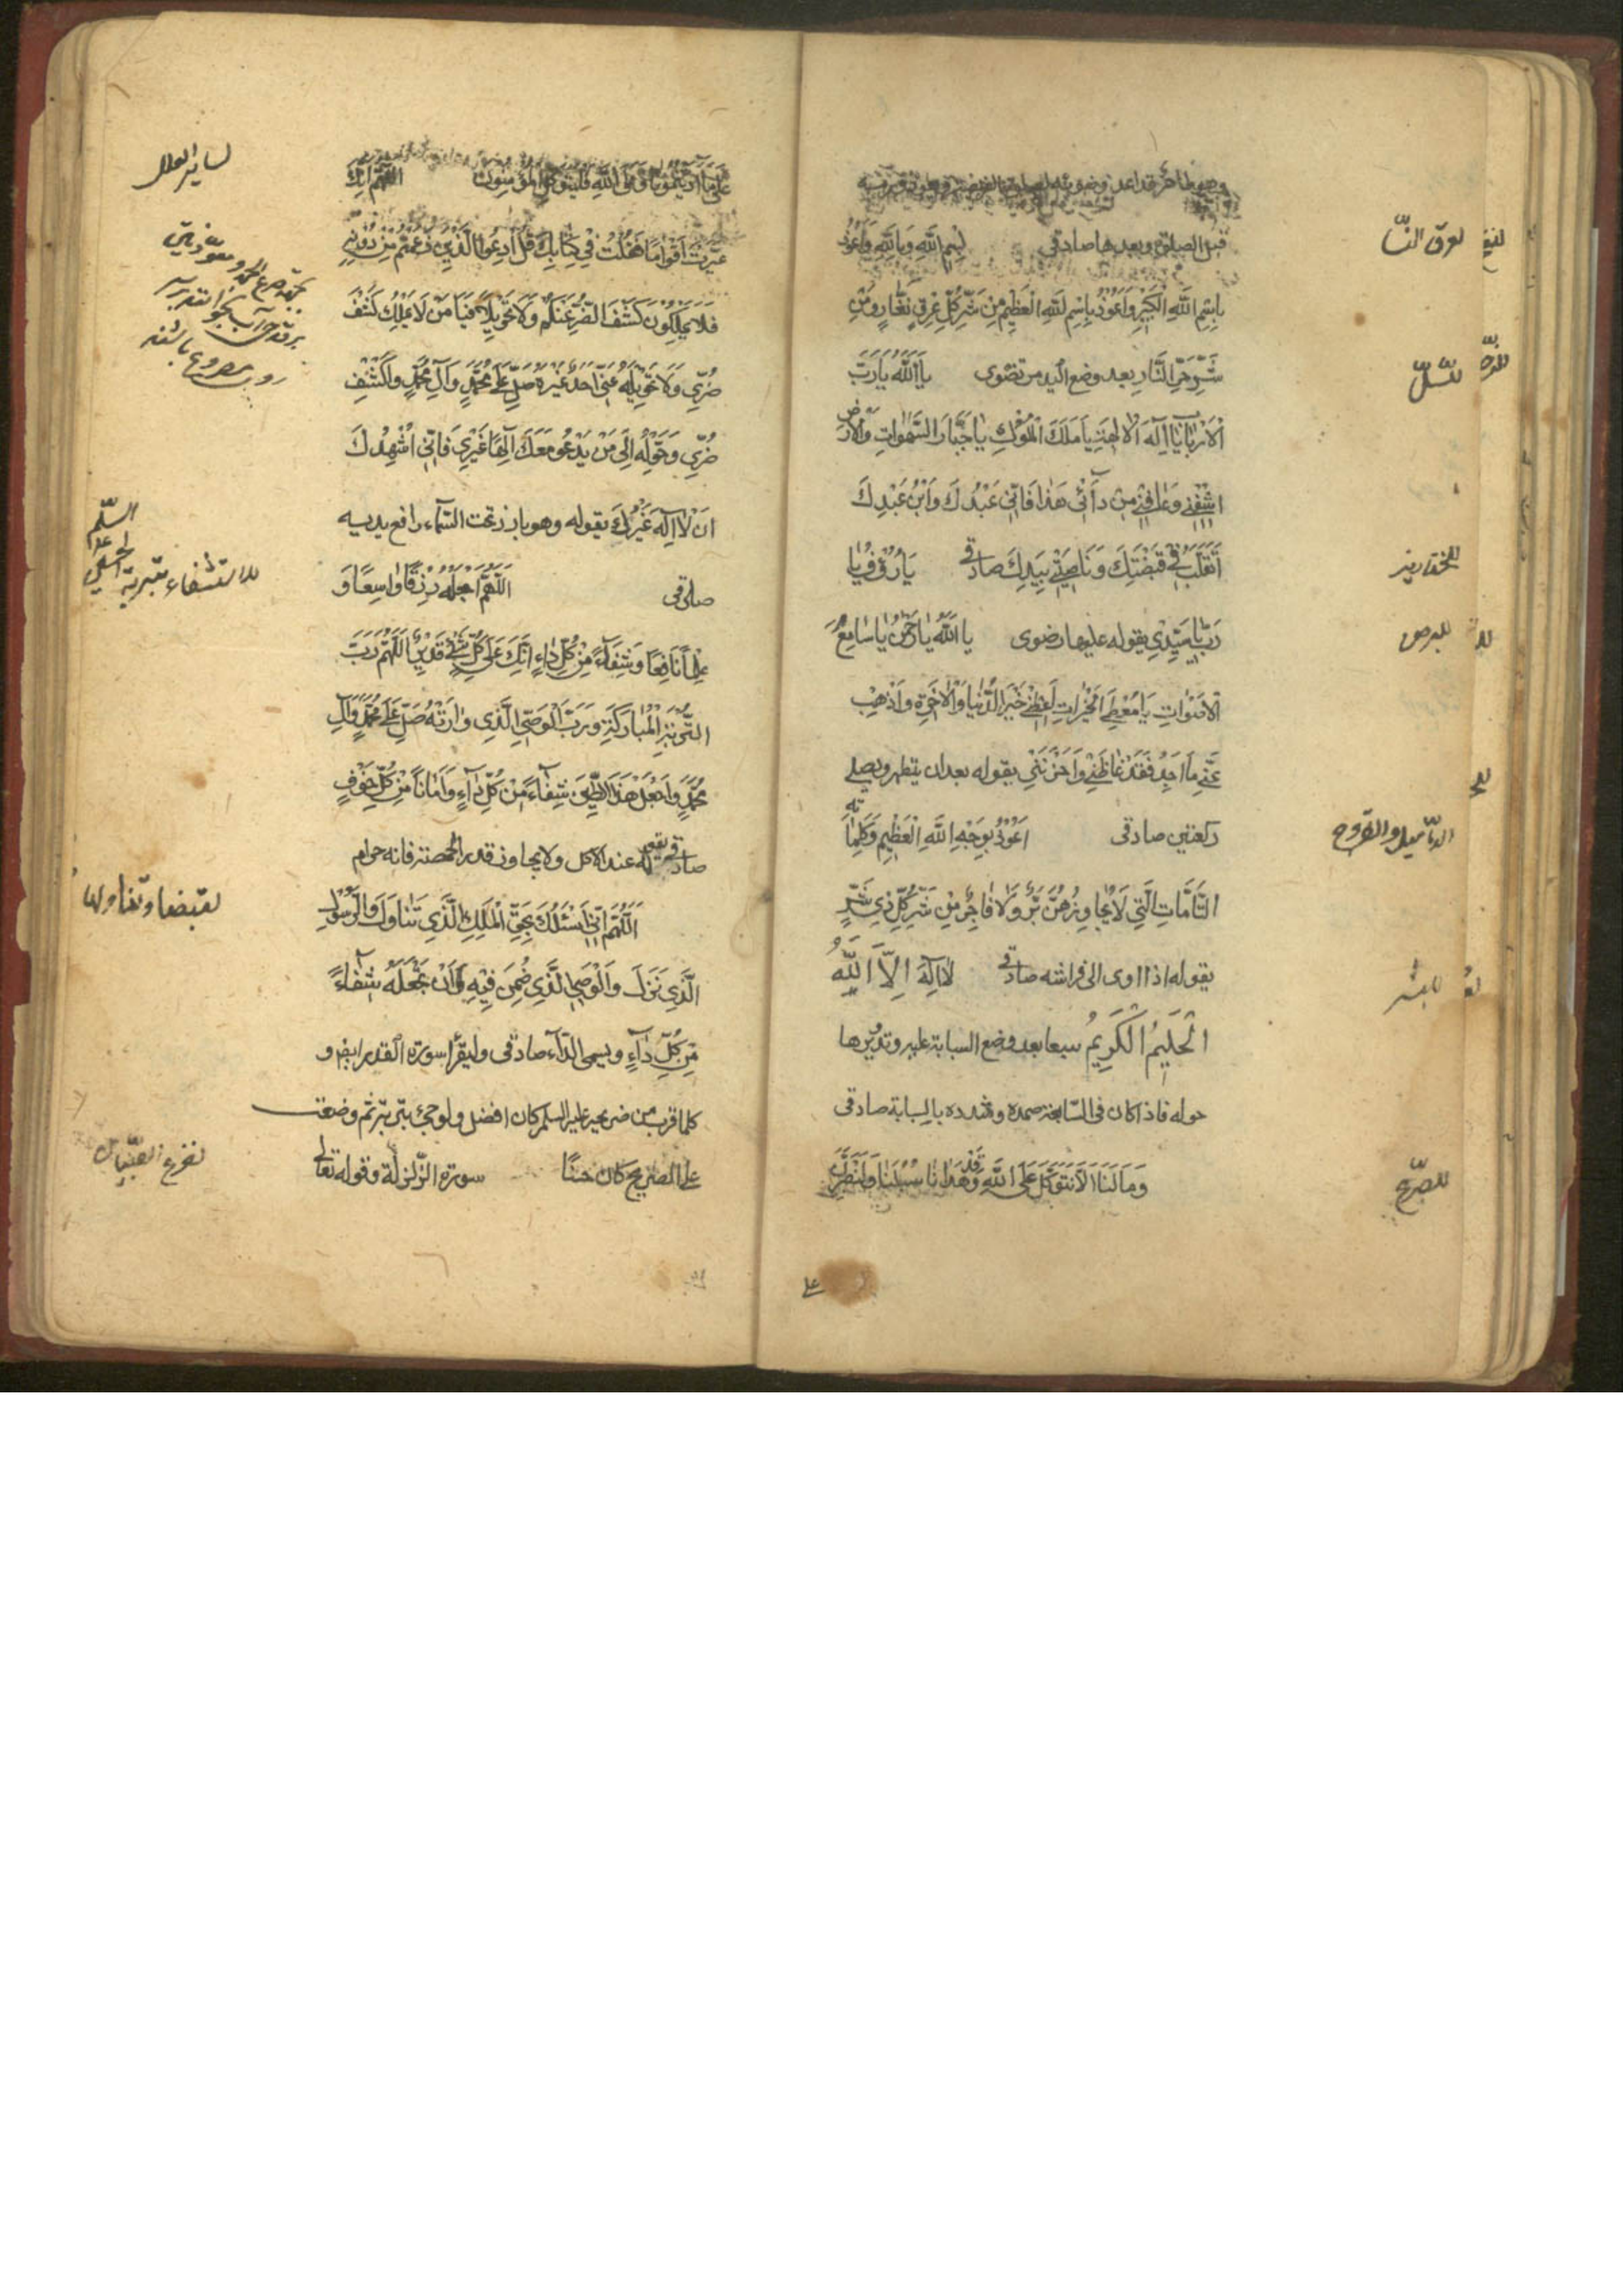 وهو طاهر قد اعد وضوئه لصلوة الفريضة
لعرق النسا
قبل الصلوة وبعدها صادقى بِسْمِ اللّٰهِ وَبِاللّٰهِ وَاَعُوذُ
بِاسْمِ اللّٰهِ الْكَبِيْرِ وَاَعُوْذُ بِاسْمِ اللّٰهِ الْعَظِيْمِ مِنْ شَرِّ كُلِّ عِرْقٍ نَعَّارٍ وَمِنْ
شَرِّ حَرِّ النَّارِ بعد وضع اليد مرتضوى يَا اَللّٰهُ يَا رَبَّ
للسّلّ
الْاَرْبَابِ يَا اِلٰهَ الْاٰلِهَةِ يَا مَلِكَ الْمُلُوْكِ يَا جَبَّارَ السَّمٰوَاتِ وَالْاَرْضِ
اشْفِنِيْ وَعَافِنِيْ مِنْ دَائِيْ هٰذَا فَاِنِّيْ عَبْدُكَ وَابْنُ عَبْدِكَ
اَتَقَلَّبُ فِيْ قَبْضَتِكَ وَنَاصِيَتِيْ بِيَدِكَ صادقى يَا رَؤُفُ يَا
للخنازير
رَبِّ يَا سَيِّدِيْ يقوله عليها رضوى يَا اَللّٰهُ يَا رَحْمٰنُ يَا سَامِعَ
للبرص
الْاَصْوَاتِ يَا مُعْطِيَ الْخَيْرَاتِ اَعْطِنِيْ خَيْرَ الدُّنْيَا وَالْاٰخِرَةِ وَاَذْهِبْ
عَنِّيْ مَا اَجِدُ فَقَدْ غَاظَنِيْ وَاَحْزَنَنِيْ يقوله بعد ان يتطهر ويصلى
ركعتين صادقى اَعُوْذُ بِوَجْهِ اللّٰهِ الْعَظِيْمِ وَكَلِمَاتِهِ
الدّماميل والقروح
التَّامَّاتِ الَّتِيْ لَا يُجَاوِزُهُنَّ بَرٌّ وَلَا فَاجِرٌ مِنْ شَرِّ كُلِّ ذِيْ شَرٍّ
يقوله اذا اوى الى فراشه صادقى لَا اِلٰهَ اِلَّا اللّٰهُ
للبثر
الْحَلِيْمُ الْكَرِيْمُ سبعا بعد وضع السبابة عليه وتديرها
حوله فاذا كان فى السّابعة ضمده وشدده بالسبابة صادقى
وَمَا لَنَا اَلَّا نَتَوَكَّلَ عَلَى اللّٰهِ وَقَدْ هَدَانَا سُبُلَنَا وَلَنَصْبِرَنَّ
على
عَلٰى مَا اٰذَيْتُمُوْنَا وَعَلَى اللّٰهِ فَلْيَتَوَكَّلِ الْمُؤْمِنُوْنَ اَللّٰهُمَّ اِنَّكَ
لساير العلل
عَيَّرْتَ اَقْوَامًا فَقُلْتَ فِيْ كِتَابِكَ قُلِ ادْعُوا الَّذِيْنَ زَعَمْتُمْ مِنْ دُوْنِهِ
فَلَا يَمْلِكُوْنَ كَشْفَ الضُّرِّ عَنْكُمْ وَلَا تَحْوِيْلًا فَيَا مَنْ لَا يَمْلِكُ كَشْفَ
ضُرِّيْ وَلَا تَحْوِيْلَهُ عَنِّيْ اَحَدٌ غَيْرُهُ صَلِّ عَلٰى مُحَمَّدٍ وَاٰلِ مُحَمَّدٍ وَاكْشِفْ
ضُرِّيْ وَحَوِّلْهُ اِلٰى مَنْ يَدْعُوْ مَعَكَ اِلٰهًا غَيْرِيْ فَاِنِّيْ اُشْهِدُكَ
اَنْ لَا اِلٰهَ غَيْرُكَ يقوله وهو بارز تحت السّماء رافع يديه
صادقى اَللّٰهُمَّ اجْعَلْهُ رِزْقًا وَاسِعًا وَ
للاستشفاء بتربة
عِلْمًا نَافِعًا وَشِفَاءً مِنْ كُلِّ دَاءٍ اِنَّكَ عَلٰى كُلِّ شَيْءٍ قَدِيْرٌ اَللّٰهُمَّ رَبَّ
التُّرْبَةِ الْمُبَارَكَةِ وَرَبَّ الْوَصِيِّ الَّذِيْ وَارَتْهُ صَلِّ عَلٰى مُحَمَّدٍ وَاٰلِ
مُحَمَّدٍ وَاجْعَلْ هٰذَا الطِّيْنَ شِفَاءً مِنْ كُلِّ دَاءٍ وَاَمَانًا مِنْ كُلِّ خَوْفٍ
صادقى يقوله عند الاكل ولا يجاوز قدر الحمصة فانه حرام
اَللّٰهُمَّ اِنِّيْ اَسْئَلُكَ بِحَقِّ الْمَلَكِ الَّذِيْ تَنَاوَلَ وَالرَّسُوْلِ
لقبضها وتناولها
الَّذِيْ نَزَلَ وَالْوَصِيِّ الَّذِيْ ضُمِّنَ فِيْهِ اَنْ تَجْعَلَهُ شِفَاءً
مِنْ كُلِّ دَاءٍ ويسمى الدّاء صادقى وليقرأ سورة القدر ايضا و
كلما قرب من ضريحه عليه السلم كان افضل ولو جئ بتربة ثم وضعت
على الضريح كان حسنًا سورة الزّلزلة وقوله تعالى
لفزع الصّبيان